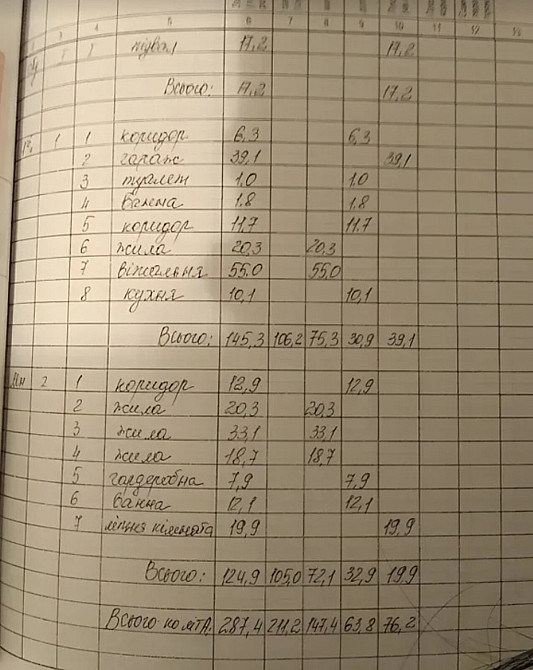 3 4 5 6 7 8 9 10 11 12 13
1 підвал 17,2 17,2
Всього: 17,2 17,2
1 1 коридор 6,3 6,3
2 гараж 39,1 39,1
3 туалет 1,0 1,0
4 ванна 1,8 1,8
5 коридор 11,7 11,7
6 жила 20,3 20,3
7 вітальня 55,0 55,0
8 кухня 10,1 10,1
Всього: 145,3 106,2 75,3 30,9 39,1
Ман 2 1 коридор 12,9 12,9
2 жила 20,3 20,3
3 жила 33,1 33,1
4 жила 18,7 18,7
5 гардеробна 7,9 7,9
6 ванна 12,1 12,1
7 літня кімната 19,9 19,9
Всього: 124,9 105,0 72,1 32,9 19,9
Всього по літА: 287,4 211,2 147,4 63,8 76,2